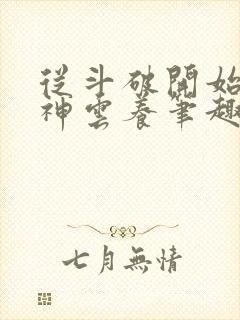 從斗破開始
神雲養筆趣
七月無情